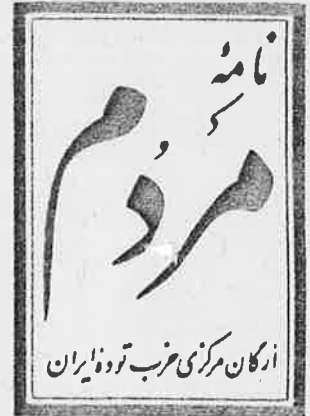 نامهٔ
مردم
ارگان مرکزی حزب تودهٔ ایران